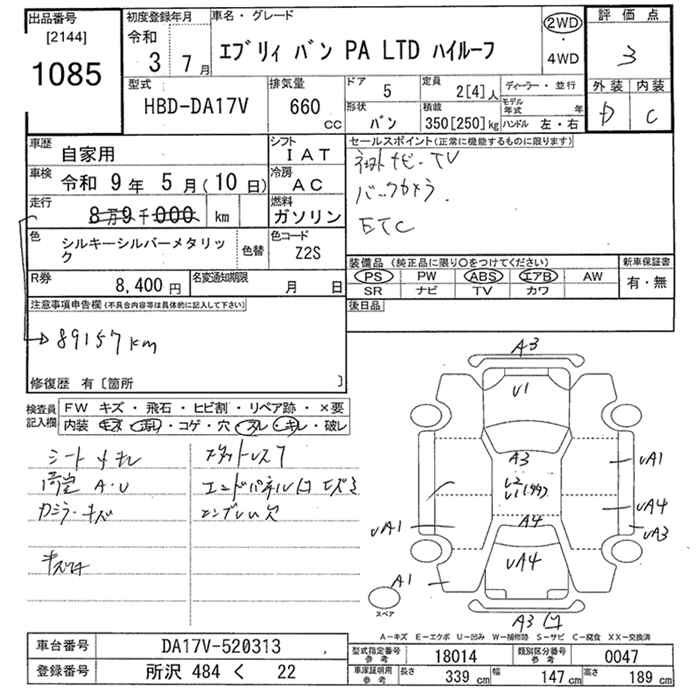 出品番号
[2144]
1085
初度登録年月
令和 3年 7月
車名・グレード
エブリィ バン PA LTD ハイルーフ
2WD
・
4WD
評価点
3
外装 内装
D C
型式
HBD-DA17V
排気量
660 CC
ドア 5
定員 2[4]人
ディーラー・並行
形状 バン
積載 350[250]kg
モデル年式 年
ハンドル 左・右
車歴 自家用
シフト IAT
車検 令和 9年 5月(10日)
冷房 AC
走行 8万9千000 km
燃料 ガソリン
色 シルキーシルバーメタリック
色替
色コード Z2S
R券 8,400円
名変通知期限 月 日
セールスポイント(正常に機能するものに限ります)
ナビ・TV
バックカメラ
ETC
装備品(純正品に限り○をつけてください)
新車保証書
PS PW ABS エアB AW
SR ナビ TV カワ
有・無
後日品
注意事項申告欄(不具合内容等は具体的に記入して下さい)
89157km
修復歴 有〔箇所 〕
検査員記入欄
FW キズ・飛石・ヒビ割・リペア跡・×要
内装 キズ・汚レ・コゲ・穴・スレ・キレ・破レ
シートキレ
荷室 A・U
エンドパネル凹キズ
エンブレム欠
A3
U1
A3
A4
UA4
UA1
UA4
UA3
UA1
A1
A3凹
スペア
A-キズ E-エクボ U-凹み W-補修跡 S-サビ C-腐食 XX-交換済
車台番号 DA17V-520313
登録番号 所沢 484 く 22
型式指定番号参考 18014
類別区分番号参考 0047
車庫証明用参考 長さ 339cm 幅 147cm 高さ 189cm